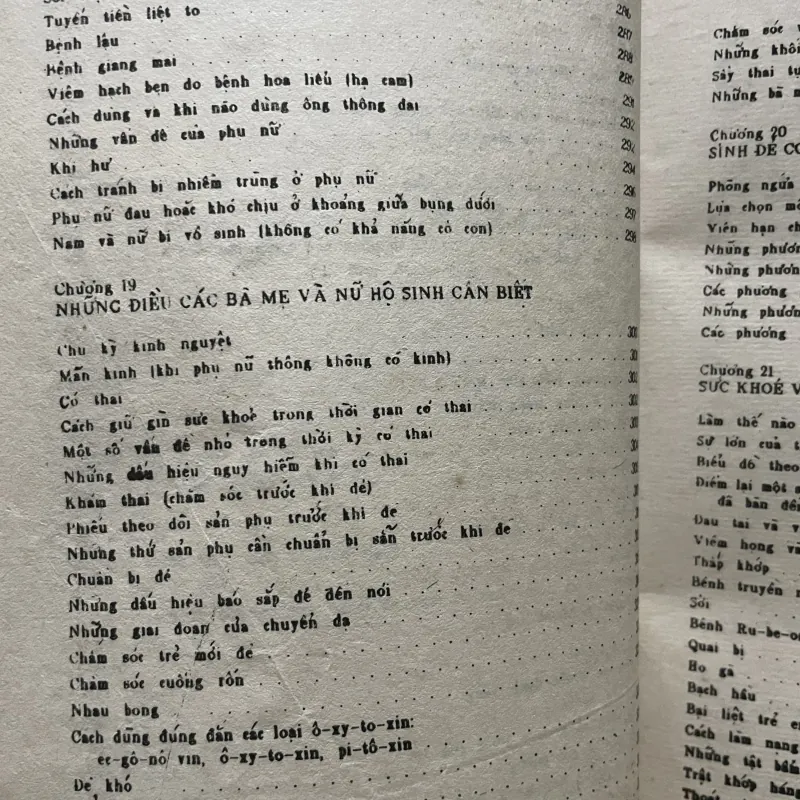 Tuyến tiền liệt to 286
Bệnh lậu 287
Bệnh giang mai 288
Viêm hạch bẹn do bệnh hoa liễu (hạ cam)
Cách dùng và khi nào dùng ống thông đái 291
Những vấn đề của phụ nữ 292
Khí hư
Cách tránh bị nhiễm trùng ở phụ nữ 294
Phụ nữ đau hoặc khó chịu ở khoảng giữa bụng dưới 296
Nam và nữ bị vô sinh (không có khả năng có con) 297
298
Chương 19
NHỮNG ĐIỀU CÁC BÀ MẸ VÀ NỮ HỘ SINH CẦN BIẾT
Chu kỳ kinh nguyệt
Mãn kinh (khi phụ nữ thông không có kinh)
Có thai
Cách giữ gìn sức khoẻ trong thời gian có thai
Một số vấn đề nhỏ trong thời kỳ có thai
Những dấu hiệu nguy hiểm khi có thai
Khám thai (chăm sóc trước khi đẻ)
Phiếu theo dõi sản phụ trước khi đẻ
Những thứ sản phụ cần chuẩn bị sẵn trước khi đẻ
Chuẩn bị đẻ
Những dấu hiệu báo sắp đẻ đến nơi
Những giai đoạn của chuyển dạ
Chăm sóc trẻ mới đẻ
Chăm sóc cuống rốn
Nhau bong
Cách dùng đúng đắn các loại ô-xy-to-xin:
ec-gô-nô-vin, ô-xy-to-xin, pi-tô-xin
Đẻ khó
Chăm sóc
Những
Sảy thai
Những bà
Chương 20
SINH ĐẺ
Phòng ngừa
Lựa chọn
Viên hạn
Những phương
Những phương
Các phương
Những phương
Các phương
Chương 21
SỨC KHOẺ
Làm thế nào
Sự lớn của
Biểu đồ theo
Điểm lại một
đã bàn đến
Đau tai và
Viêm họng và
Thấp khớp
Bệnh truyền
Sởi
Bệnh Ru-be-o
Quai bị
Ho gà
Bạch hầu
Bại liệt trẻ
Cách làm nạng
Những tật bẩm
Trật khớp háng